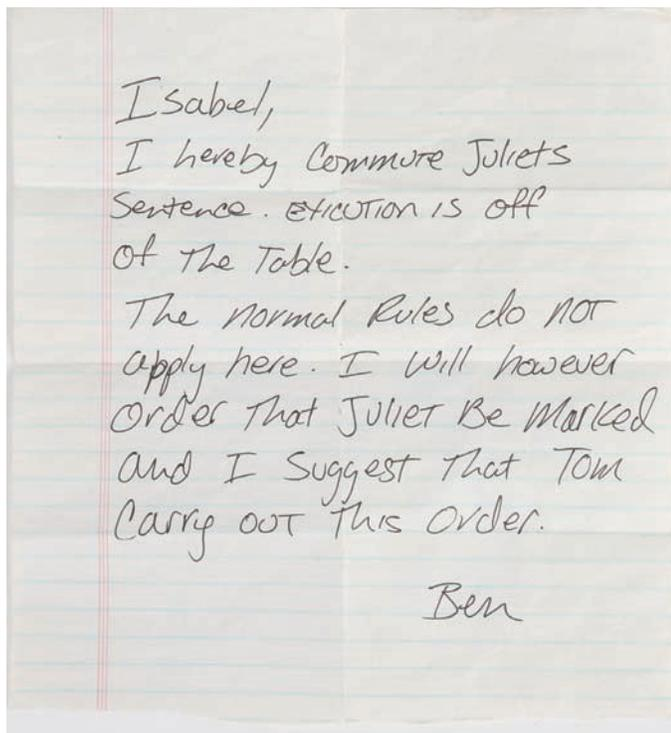 Isabel,
I hereby Commute Juliets
Sentence. Exicution is off
of The Table.
The normal Rules do not
apply here. I will however
Order That Juliet Be Marked
and I Suggest That Tom
Carry out This Order.
Ben